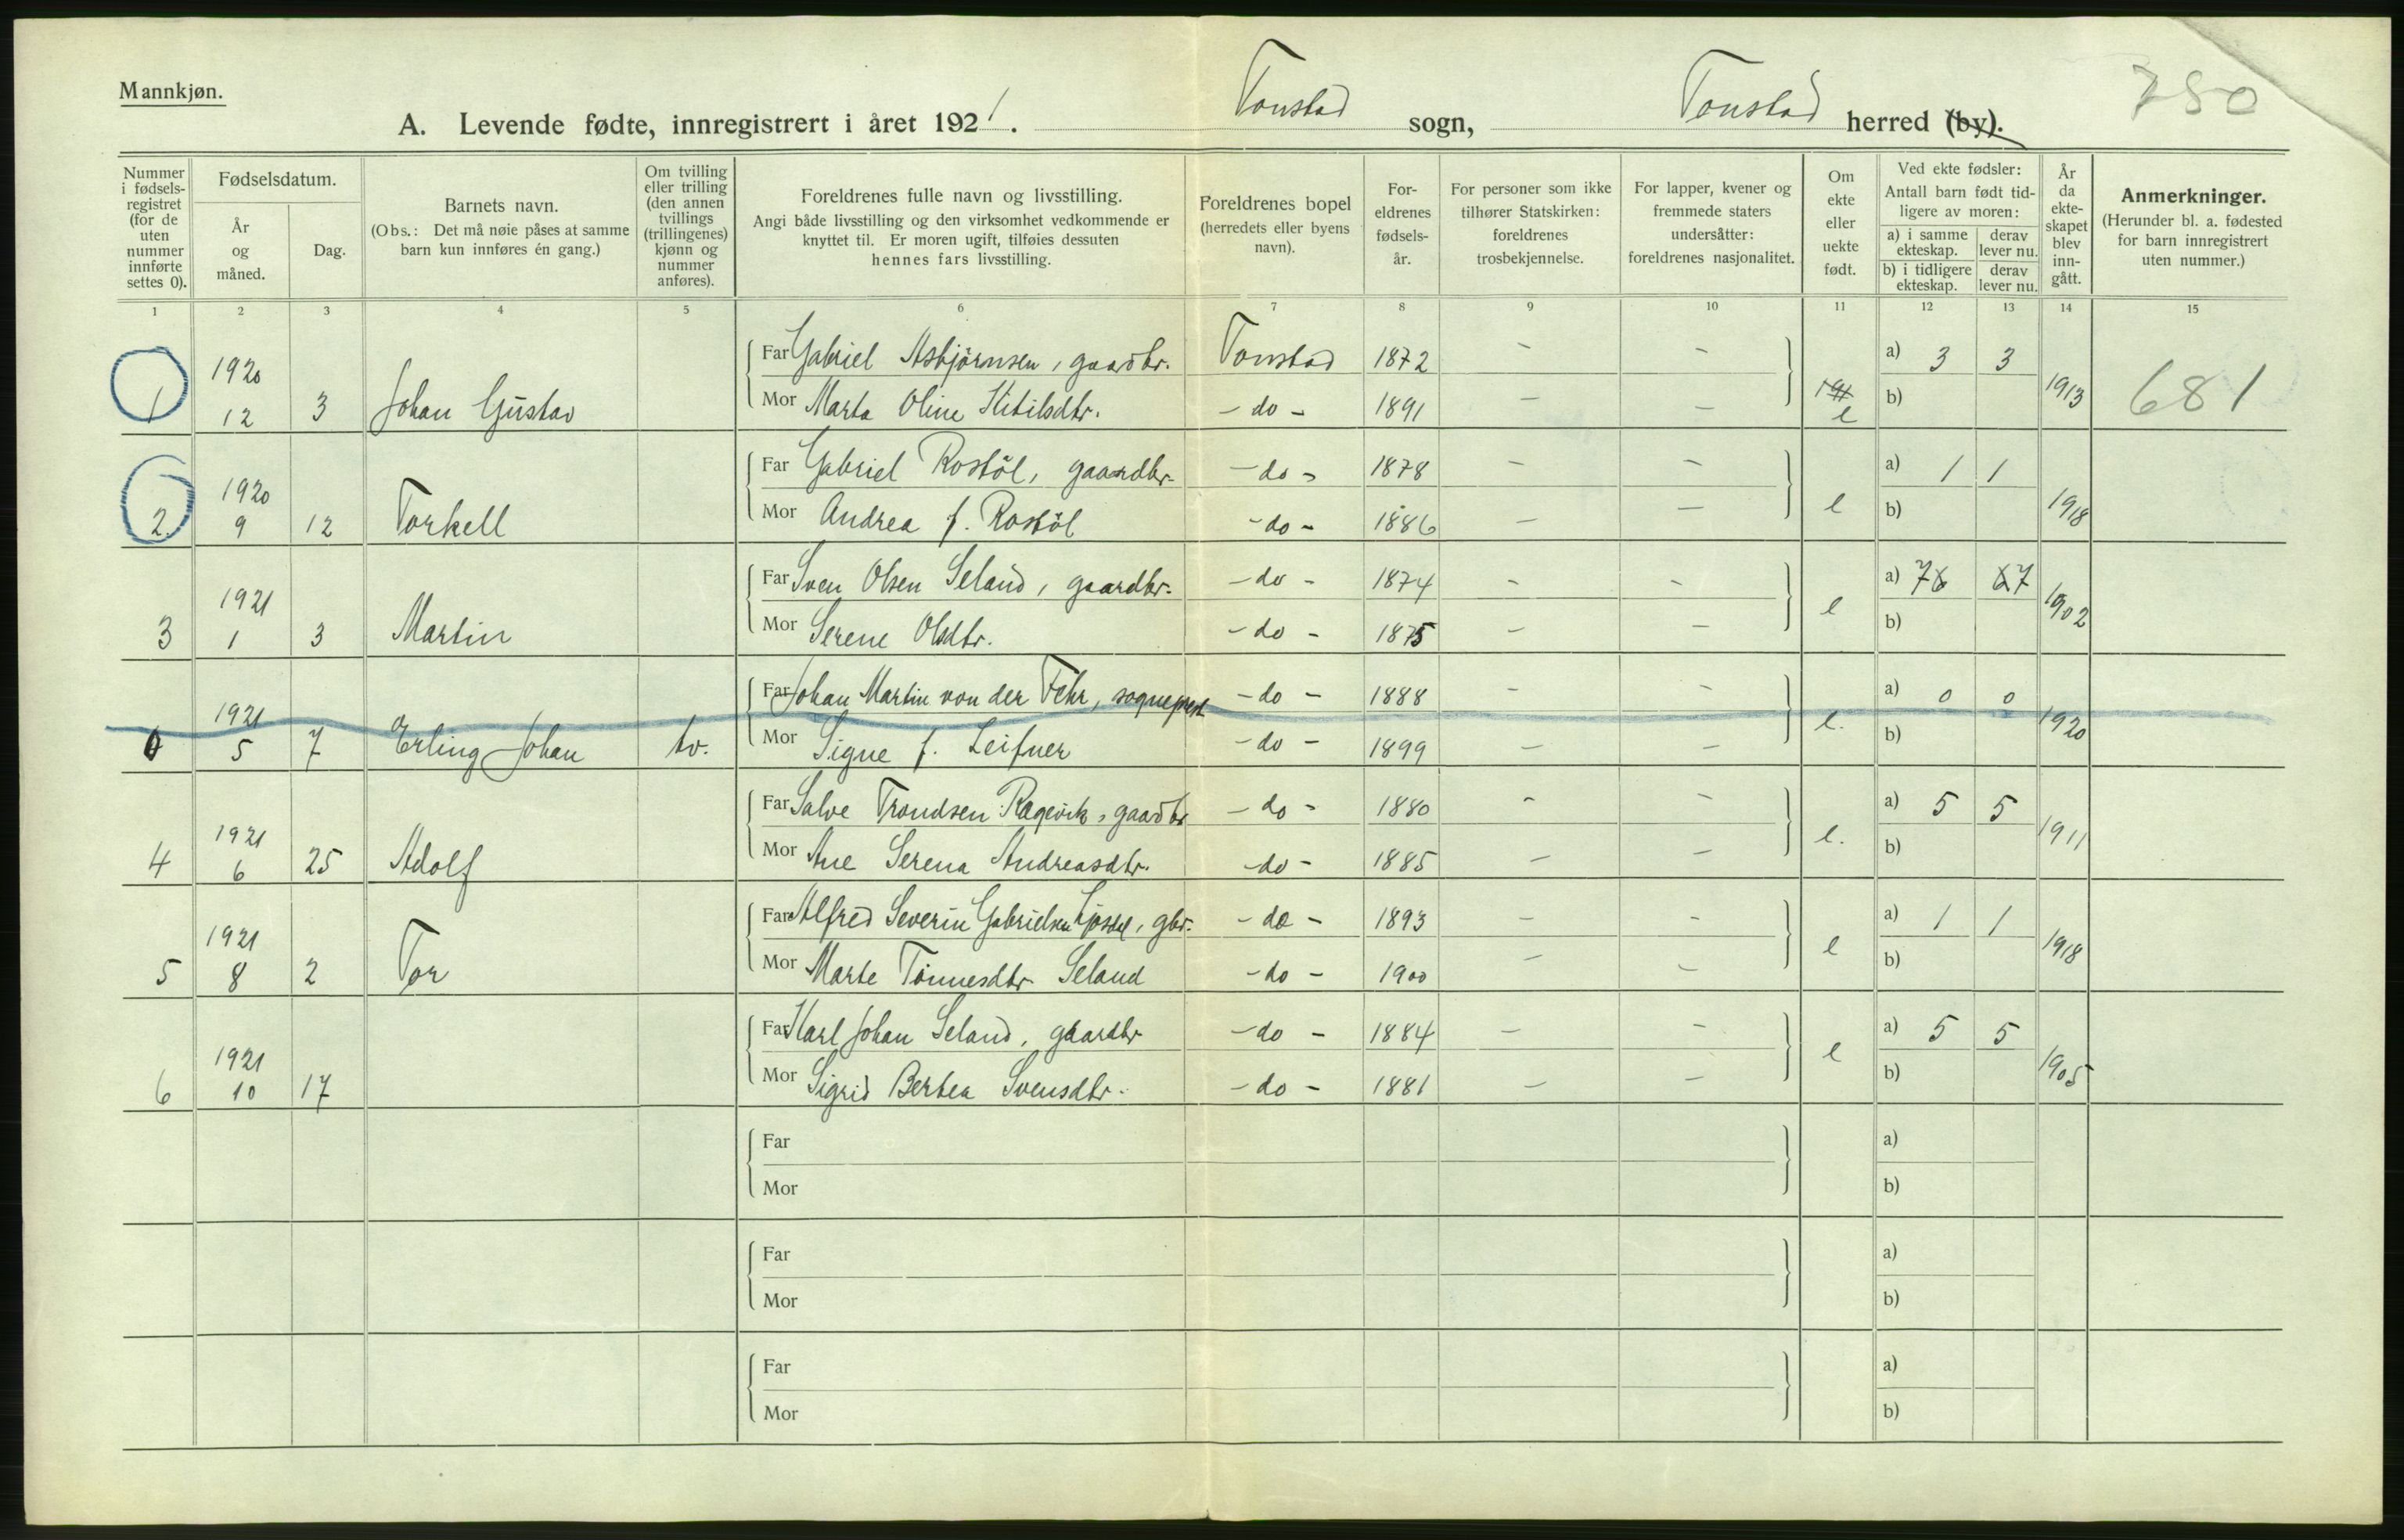 Mannkjøn.
A. Levende fødte, innregistrert i året 1921. Tonstad sogn, Tonstad herred (by).
750
Nummer i fødsels-registret (for de uten nummer innførte settes 0).
Fødselsdatum.
År og måned.
Dag.
Barnets navn.
(Obs.: Det må nøie påses at samme barn kun innføres én gang.)
Om tvilling eller trilling (den annen tvillings (trillingenes) kjønn og nummer anføres).
Foreldrenes fulle navn og livsstilling.
Angi både livsstilling og den virksomhet vedkommende er knyttet til. Er moren ugift, tilføies dessuten hennes fars livsstilling.
Foreldrenes bopel (herredets eller byens navn).
For-eldrenes fødsels-år.
For personer som ikke tilhører Statskirken: foreldrenes trosbekjennelse.
For lapper, kvener og fremmede staters undersåtter: foreldrenes nasjonalitet.
Om ekte eller uekte født.
Ved ekte fødsler:
Antall barn født tid-ligere av moren:
a) i samme ekteskap. derav lever nu.
b) i tidligere ekteskap. derav lever nu.
År da ekte-skapet blev inn-gått.
Anmerkninger.
(Herunder bl. a. fødested for barn innregistrert uten nummer.)
1 2 3 4 5 6 7 8 9 10 11 12 13 14 15
Far Gabriel Asbjörnsen, gaardbr. Tonstad 1872 - - a) 3 3
1 1920 12 3 Johan Gustav Mor Marta Oline Kitilsdtr. - do - 1891 - - e b) 1913 681
Far Gabriel Rostöl, gaardbr. - do - 1878 - - a) 1 1
2. 1920 9 12 Torkell Mor Andrea f. Rostöl - do - 1886 - - e b) 1918
Far Sven Olsen Seland, gaardbr. - do - 1874 - - a) 7 7
3 1921 1 3 Martin Mor Serene Olsdtr. - do - 1875 - - e b) 1902
Far Johan Martin von der Fehr, sogneprest - do - 1888 - - a) 0 0
0 1921 5 7 Erling Johan tv. Mor Signe f. - do - 1899 - - e. b) 1920
Far Salve Trondsen gaardbr - do - 1880 - - a) 5 5
4 1921 6 25 Adolf Mor Ane Serena Andreasdtr. - do - 1885 - - e. b) 1911
Far Alfred Severin Gabrielsen gbr. - do - 1893 - - a) 1 1
5 1921 8 2 Tor Mor Marte Tönnesdtr. Seland - do - 1900 - - e b) 1918
Far Karl Johan Seland, gaardbr - do - 1884 - - a) 5 5
6 1921 10 17 Mor Sigrid Bertea Svensdtr. - do - 1881 - - e b) 1905
Far a)
Mor b)
Far a)
Mor b)
Far a)
Mor b)